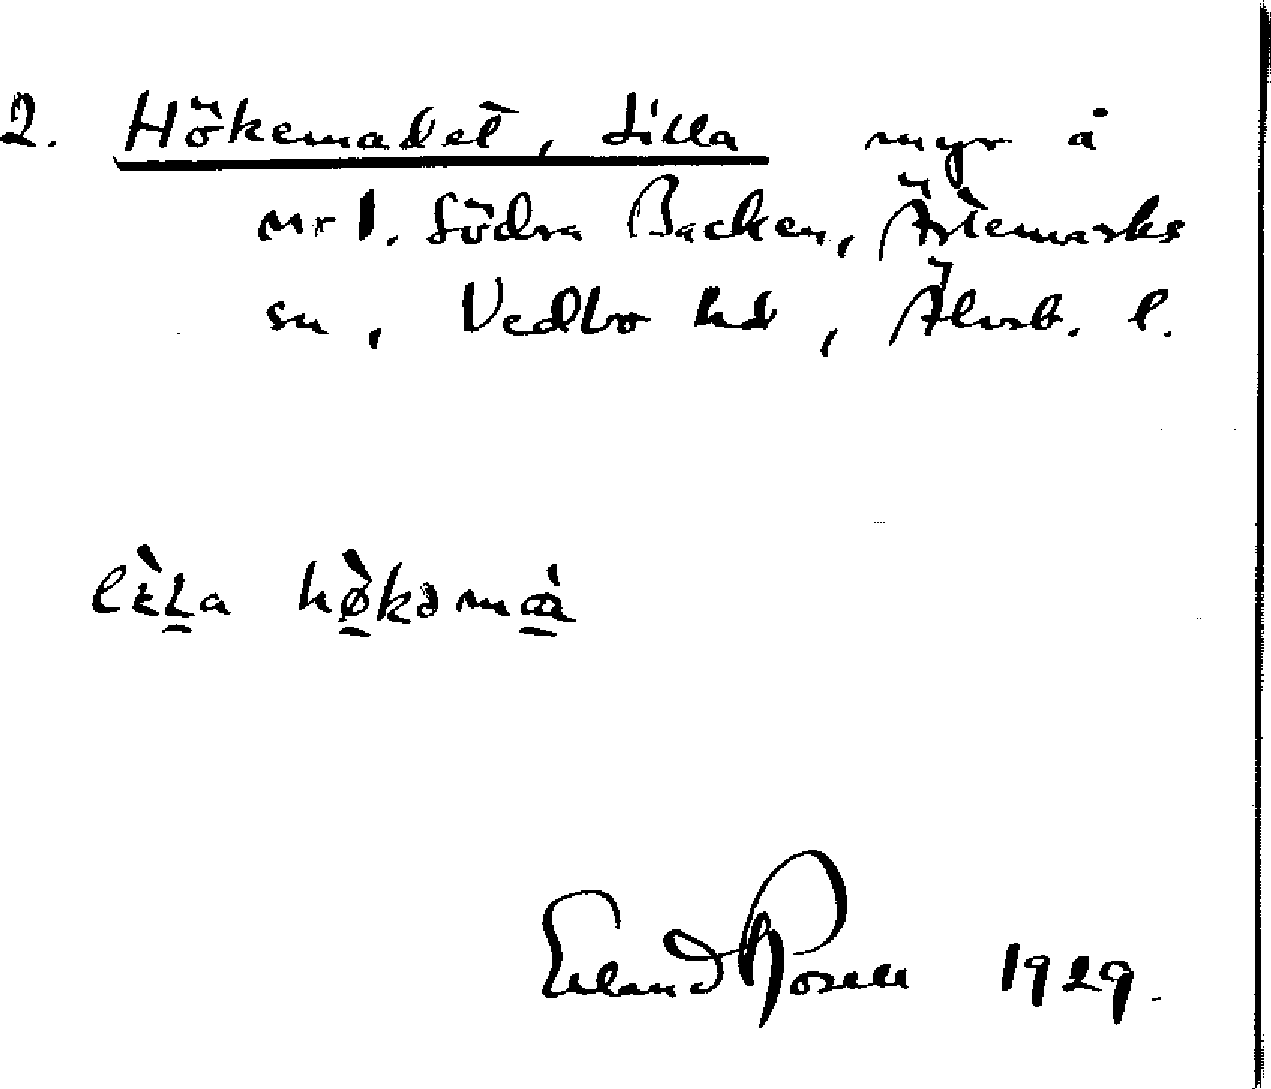 2. Hökemadet, Lilla myr å
nr 1. Södra Backen, Ärtemarks
sn, Vedbo hd, Älvsb. l.
lɛ̀La hø̀kəmœ̀
Erland Rosell 1929.